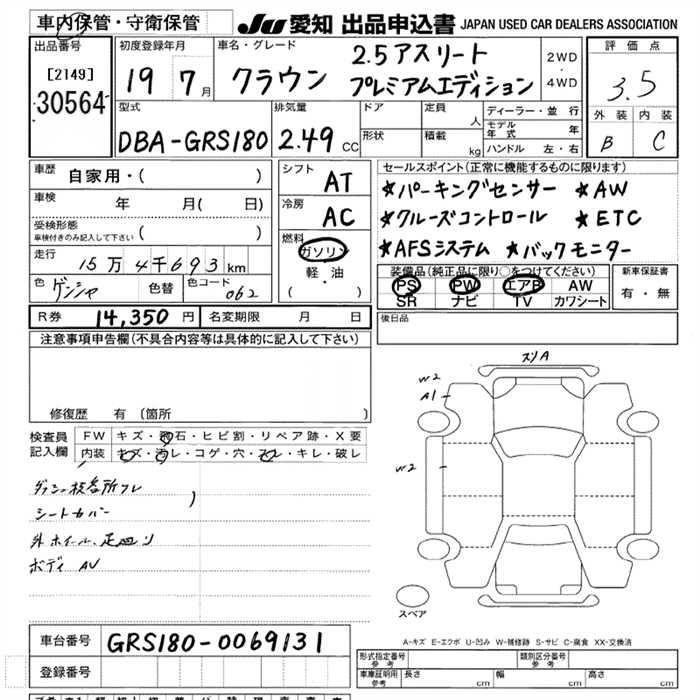 車内保管・守衛保管
JU 愛知 出品申込書 JAPAN USED CAR DEALERS ASSOCIATION
出品番号
[2149]
30564
初度登録年月
19 7月
車名・グレード
クラウン 2.5アスリート
プレミアムエディション
2WD
・
4WD
評価点
3.5
外装 内装
B C
型式
DBA-GRS180
排気量
2.49 CC
ドア
形状
定員 人
積載 kg
ディーラー・並行
モデル年式 年
ハンドル 左・右
車歴 自家用・( )
車検 年 月( 日)
受検形態
車検付きのみ記入して下さい ( )
走行 15万4千693km
色 ゲンシャ
色替
色コード 062
シフト AT
冷房 AC
燃料
ガソリン
軽・油
( ・ )
セールスポイント(正常に機能するものに限ります)
★パーキングセンサー ★AW
★クルーズコントロール ★ETC
★AFSシステム ★バックモニター
装備品(純正品に限り○をつけてください)
PS PW エアB AW
SR ナビ TV カワシート
新車保証書
有・無
R券 14,350円 名変期限 月 日
後日品
注意事項申告欄(不具合内容等は具体的に記入して下さい)
修復歴 有(箇所 )
検査員記入欄
FW キズ・飛石・ヒビ割・リペア跡・X要
内装 キズ・汚レ・コゲ・穴・スレ・キレ・破レ
シートカバー
ボディ AU
スリA
W2
A1
W2
スペア
A-キズ E-エクボ U-凹み W-補修跡 S-サビ C-腐食 XX-交換済
車台番号 GRS180-0069131
登録番号
形式指定番号
参考
類別区分番号
参考
車庫証明用
参考
長さ cm 幅 cm 高さ cm